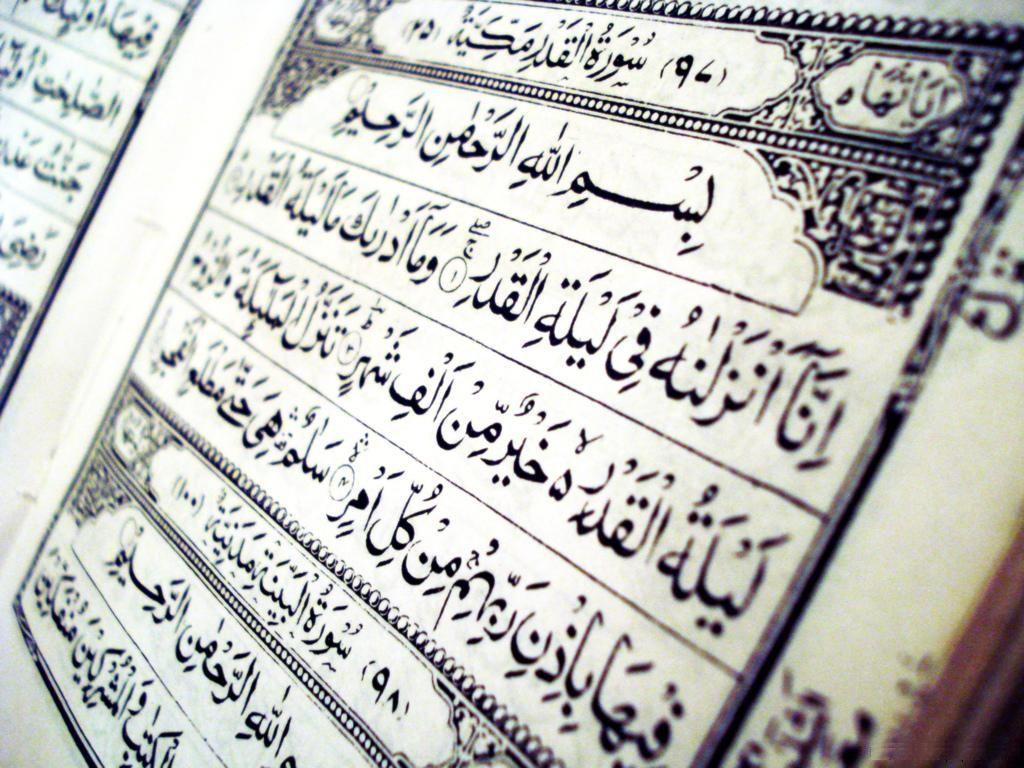 اٰيَاتُهَا ٥
(٩٧) سُوْرَةُ الْقَدْرِ مَكِّيَّةٌ (٢٥)
بِسْمِ اللّٰهِ الرَّحْمٰنِ الرَّحِيْمِ
اِنَّآ اَنْزَلْنٰهُ فِيْ لَيْلَةِ الْقَدْرِ ۝١ وَمَآ اَدْرٰىكَ مَا لَيْلَةُ الْقَدْرِ
لَيْلَةُ الْقَدْرِ ۵ خَيْرٌ مِّنْ اَلْفِ شَهْرٍ ۝٣ تَنَزَّلُ الْمَلٰٓئِكَةُ وَالرُّوْحُ
فِيْهَا بِاِذْنِ رَبِّهِمْ مِنْ كُلِّ اَمْرٍ ۝٤ سَلٰمٌ هِيَ حَتّٰى مَطْلَعِ الْفَجْرِ
(٩٨) سُوْرَةُ الْبَيِّنَةِ مَدَنِيَّةٌ (١٠٠)
اللّٰهِ الرَّحْمٰنِ الرَّحِيْمِ
الْكِتٰبِ وَالْمُشْرِكِيْنَ مُنْفَكِّيْنَ
فِيْهَا اُولٰٓئِكَ
الصّٰلِحٰتِ
جَنّٰتُ عَدْنٍ
رَضِيَ